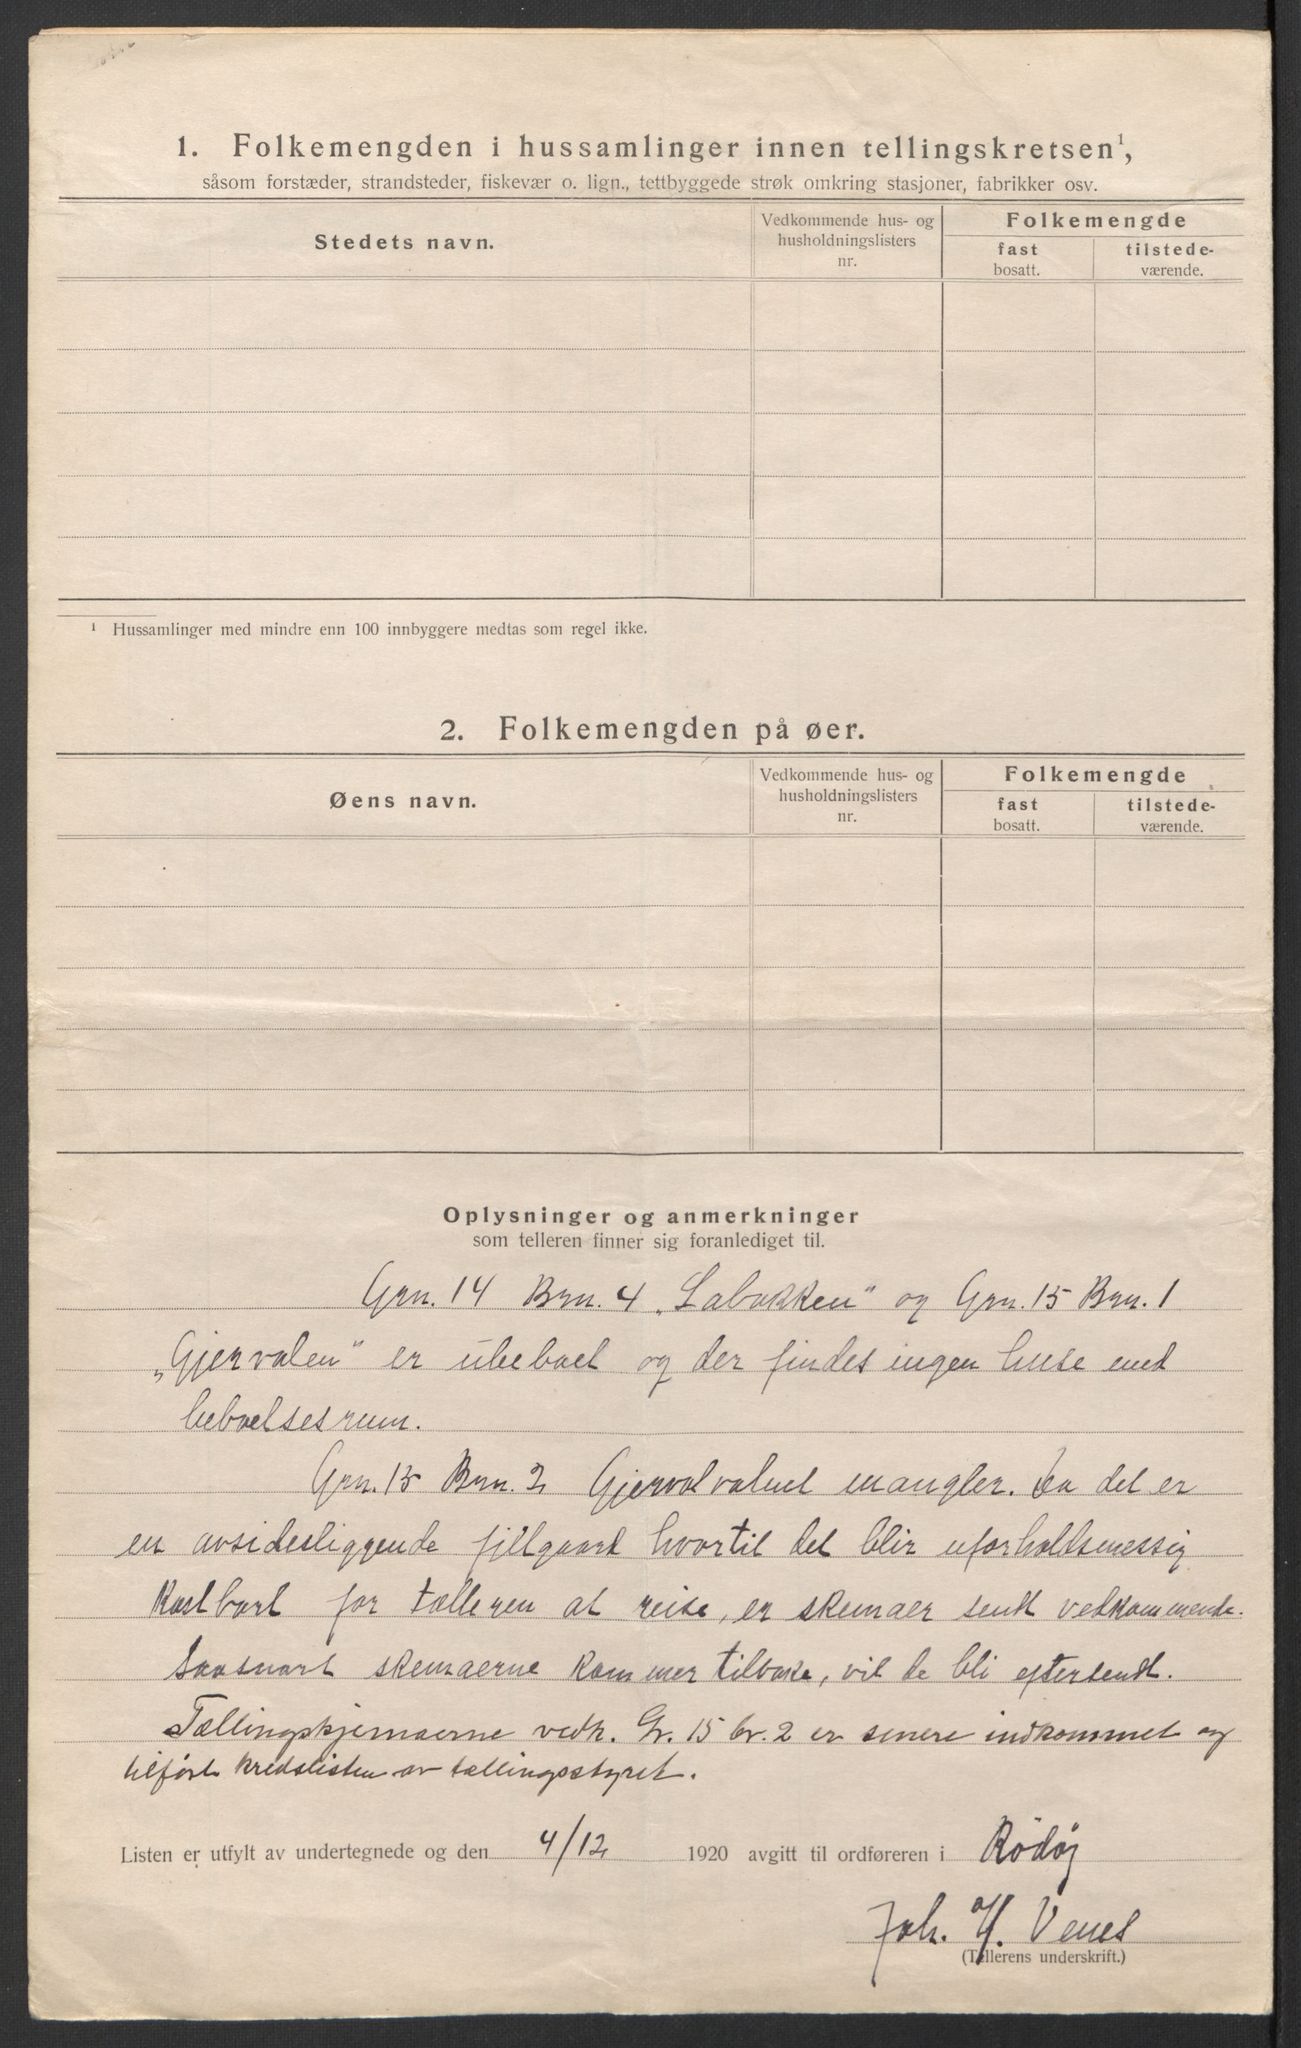 1. Folkemengden i hussamlinger innen tellingskretsen¹,
såsom forstæder, strandsteder, fiskevær o. lign., tettbyggede strøk omkring stasjoner, fabrikker osv.
Stedets navn.
Vedkommende hus- og
husholdningslisters
nr.
Folkemengde
fast
bosatt.
tilstede-
værende.
¹ Hussamlinger med mindre enn 100 innbyggere medtas som regel ikke.
2. Folkemengden på øer.
Øens navn.
Vedkommende hus- og
husholdningslisters
nr.
Folkemengde
fast
bosatt.
tilstede-
værende.
Oplysninger og anmerkninger
som telleren finner sig foranlediget til.
Grn. 14 Brn. 4 „Labakken" og Grn. 15 Brn. 1
„Gjervalen" er ubeboet og der findes ingen huse med
beboelsesrum.
Grn. 15 Brn. 2 Gjervalvatnet mangler. Da det er
en avsidesliggende fjellgaard hvortil det blir uforholdsmessig
kostbart for tælleren at reise, er skemaer sendt vedkommende.
Saasnart skemaerne kommer tilbake, vil de bli eftersendt.
Tællingskjemaerne vedk. Gr. 15 br. 2 er senere indkommet og
tilført kredslisten av tællingsstyret.
Listen er utfylt av undertegnede og den 4/12 1920 avgitt til ordføreren i Rödöy
Joh. H. Venes
(Tellerens underskrift.)